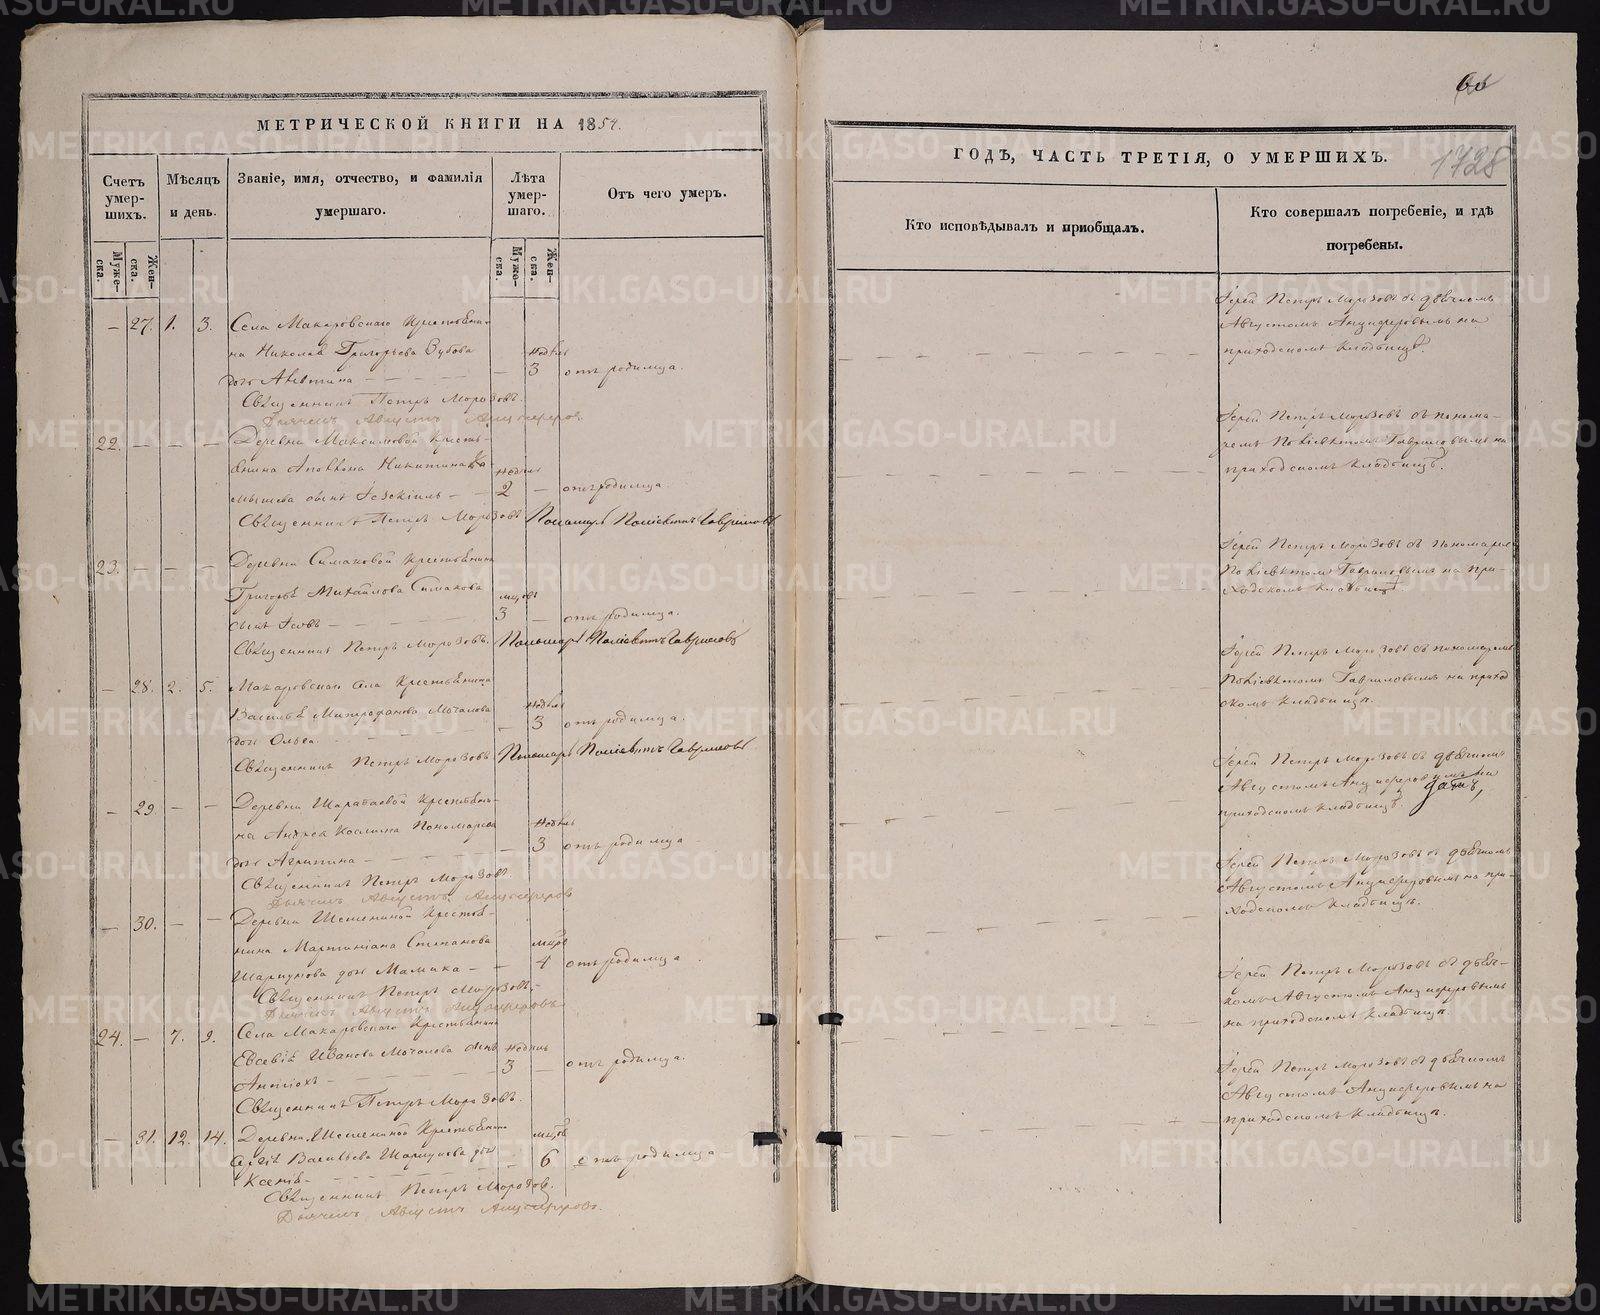 МЕТРИЧЕСКОЙ КНИГИ НА 1854.
Счетъ умер- шихъ.
Мѣсяцъ и день.
Званіе, имя, отчество, и фамилія умершаго.
Лѣта умер- шаго.
Отъ чего умеръ.
Муже- ска.
Жен- ска.
Муже- ска.
Жен- ска.
— 27. 1. 3. Села Макаровскаго Крестьяни-
на Николая Григорьева Зубова недѣль
дочь — — — 3 отъ родимца.
Священникъ Петръ Морозовъ.
Дьячекъ Августъ Анциферовъ
22. — — — Деревни Максимовой Кресть-
янина Никитина недѣль
сынъ Іезекіиль — — 2 — отъ родимца.
Священникъ Петръ Морозовъ Пономарь Поліевктъ Гавриловъ
23. — — — Деревни Симаковой Крестьянина
Григорья Михайлова Симакова мцовъ
сынъ Іовъ — — — 3 — отъ родимца.
Священникъ Петръ Морозовъ. Пономарь Поліевктъ Гавриловъ
— 28. 2. 5. Макаровскаго села Крестьянина
Василья Митрофанова Мочалова недѣль
дочь Ольга — 3 отъ родимца.
Священникъ Петръ Морозовъ Пономарь Поліевктъ Гавриловъ
— 29. — — Деревни Крестьяни-
на Андрея Косьмина Пономарева недѣль
дочь Агрипина — — — 3 отъ родимца
Священникъ Петръ Морозовъ.
Дьячекъ Августъ Анциферовъ
— 30. — — Деревни Крестья-
нина Мартиніана Степанова мцов
дочь — — 4 отъ родимца
Священникъ Петръ Морозовъ.
Дьячекъ Августъ Анциферовъ
24. — 7. 9. Села Макаровскаго Крестьянина
Евсевія Иванова Мочалова сынъ недѣль
Антіохъ — — 3 — отъ родимца.
Священникъ Петръ Морозовъ.
— 31. 12. 14. Деревни Крестьянина
Васильева дочь мцовъ
Ксенія — — 6 отъ родимца —
Священникъ Петръ Морозов.
Дьячекъ Августъ Анциферовъ.
60
1728
ГОДЪ, ЧАСТЬ ТРЕТІЯ, О УМЕРШИХЪ.
Кто исповѣдывалъ и пріобщалъ.
Кто совершалъ погребеніе, и гдѣ погребены.
Іерей Петръ Морозовъ съ дьячкомъ
Августомъ Анциферовымъ на
приходскомъ кладбищѣ.
Іерей Петръ Морозовъ съ понома-
ремъ Поліевктомъ Гавриловымъ на
приходскомъ кладбищѣ.
Іерей Петръ Морозовъ съ пономаремъ
Поліевктомъ Гавриловымъ на при-
ходскомъ кладбищѣ.
Іерей Петръ Морозовъ съ пономаремъ
Поліевктомъ Гавриловымъ на приход
скомъ кладбищѣ.
Іерей Петръ Морозовъ съ дьячкомъ
Августомъ Анциферовымъ на
приходскомъ кладбищѣ.
Іерей Петръ Морозовъ съ дьячкомъ
Августомъ Анциферовымъ на при-
ходскомъ кладбищѣ.
Іерей Петръ Морозовъ съ дьяч-
комъ Августомъ Анциферовымъ
на приходскомъ кладбищѣ.
Іерей Петръ Морозовъ съ дьячкомъ
Августомъ Анциферовымъ на
приходскомъ кладбищѣ.
METRIKI.GASO-URAL.RU